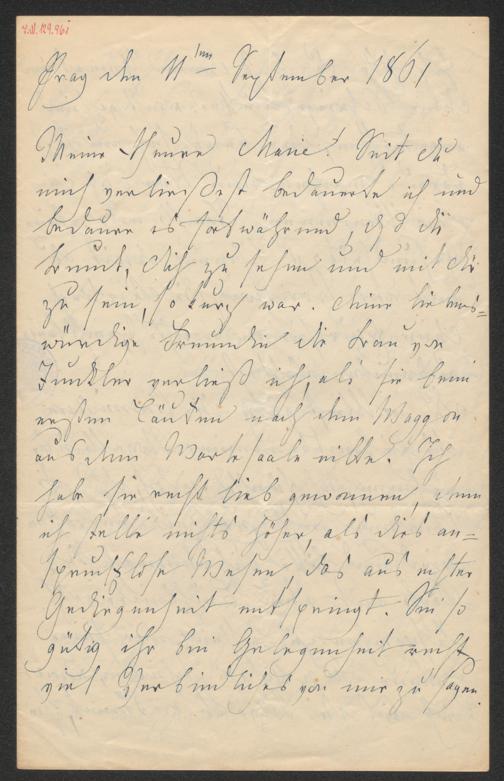 Prag den 11ten September 1861
Meine theure Marie! Seit du
mich verließest bedauerte ich und
bedaure es fortwährend, daß die
Freude, dich zu sehen und mit dir
zu sein, so kurz war. Deine liebens=
würdige Freundin die Frau von
verließ ich, als sie beim
ersten Läuten nach dem Waggon
aus dem Wartesaale eilte. Ich
habe sie recht lieb gewonnen, denn
ich stelle nichts höher, als dies an=
spruchslose Wesen, das aus echter
Gediegenheit entspringt. Sei so
gütig ihr bei Gelegenheit recht
viel Verbindliches von mir zu sagen.